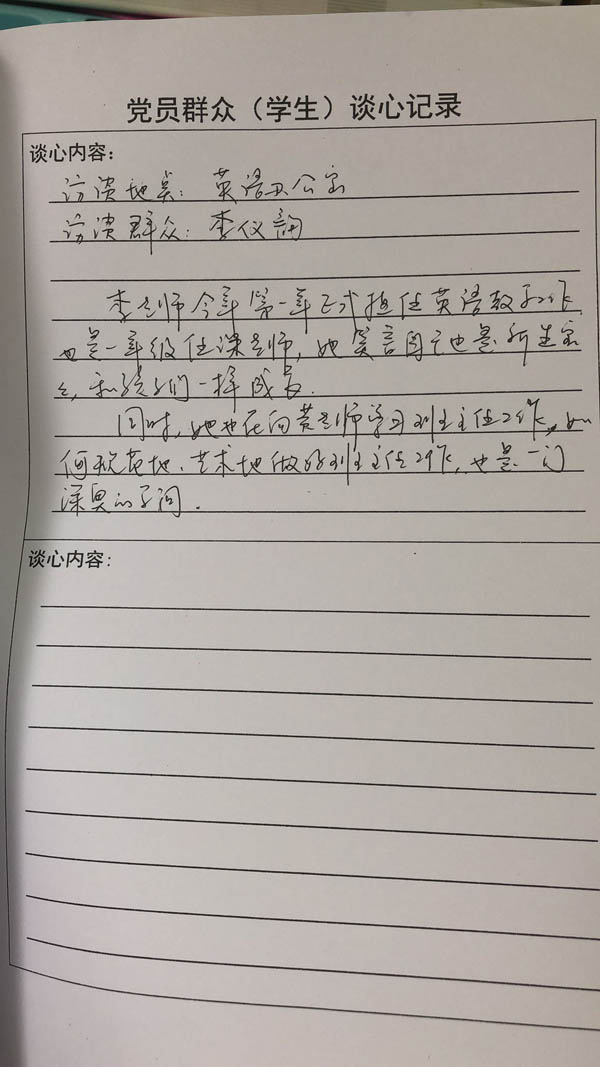 党员群众（学生）谈心记录
谈心内容：
访谈地点：英语办公室
访谈群众：李仪韵
李老师今年第一年正式担任英语教学工作，
也是一年级任课老师，她笑言自己也是新生宝
宝，和孩子们一样成长。
同时，她也在向黄老师学习班主任工作，如
何规范地、艺术地做好班主任工作，也是一门
深奥的学问．
谈心内容：